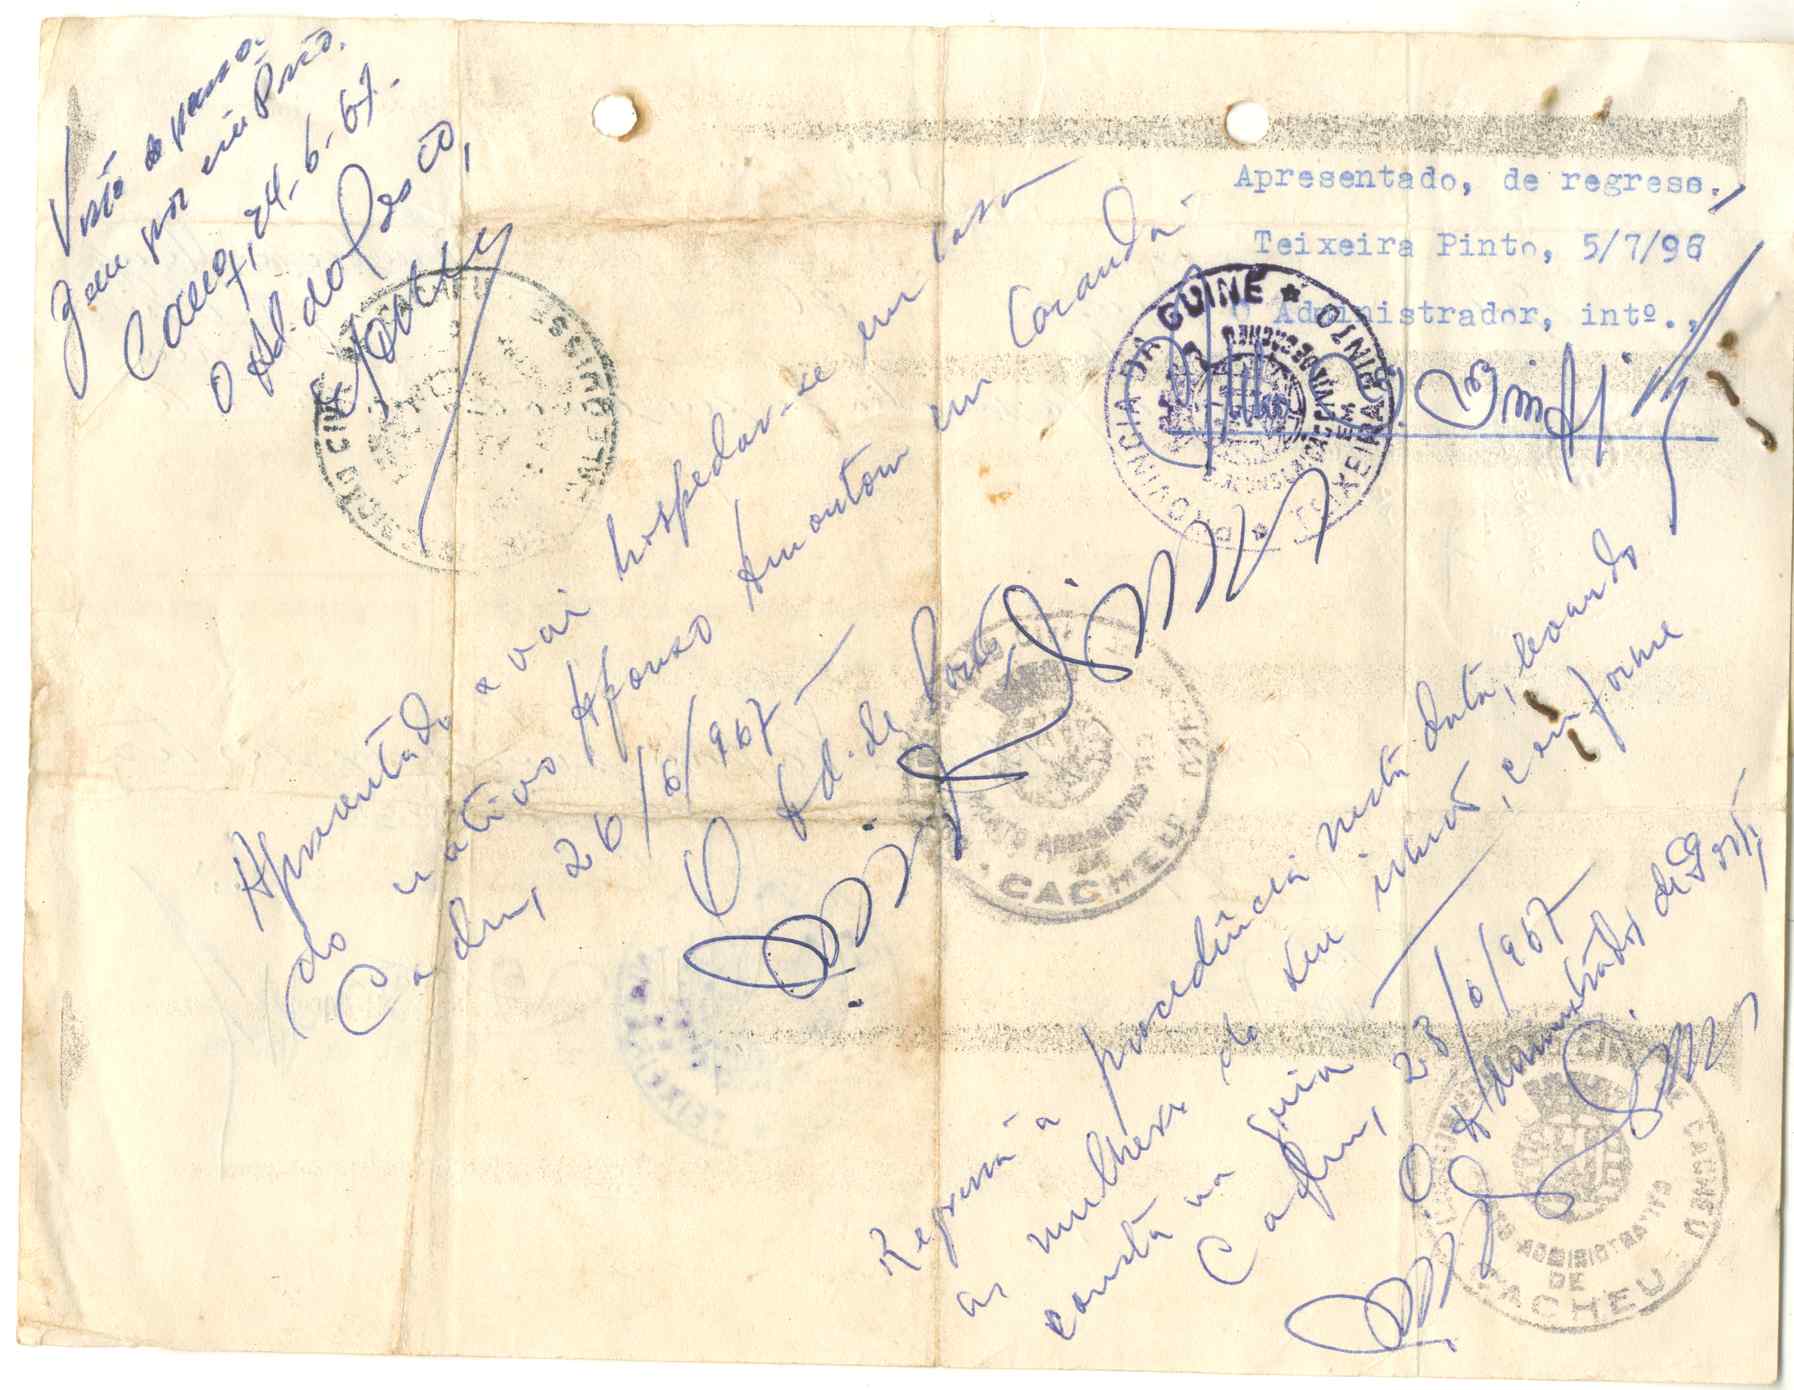 Visto de passa-
gem por em Brió.
24-6-67.
O Ad. do Posto,
Apresentado, de regresso.
Teixeira Pinto, 5/7/96
O Administrador, intº.,
PROVÍNCIA DA GUINÉ
TEIXEIRA PINTO
Apresentado e vai hospedar-se em casa
do nativo Afonso Amontom em Caranda-
Cacheu, 26/6/967-
O Ad. de Posto
CACHEU
Regressa a procedência nesta data, levando
as mulheres do seu irmão, conforme
consta na guia
Cacheu, 28/6/967
O Administrador de Posto,
POSTO ADMINISTRATIVO
DE
CACHEU